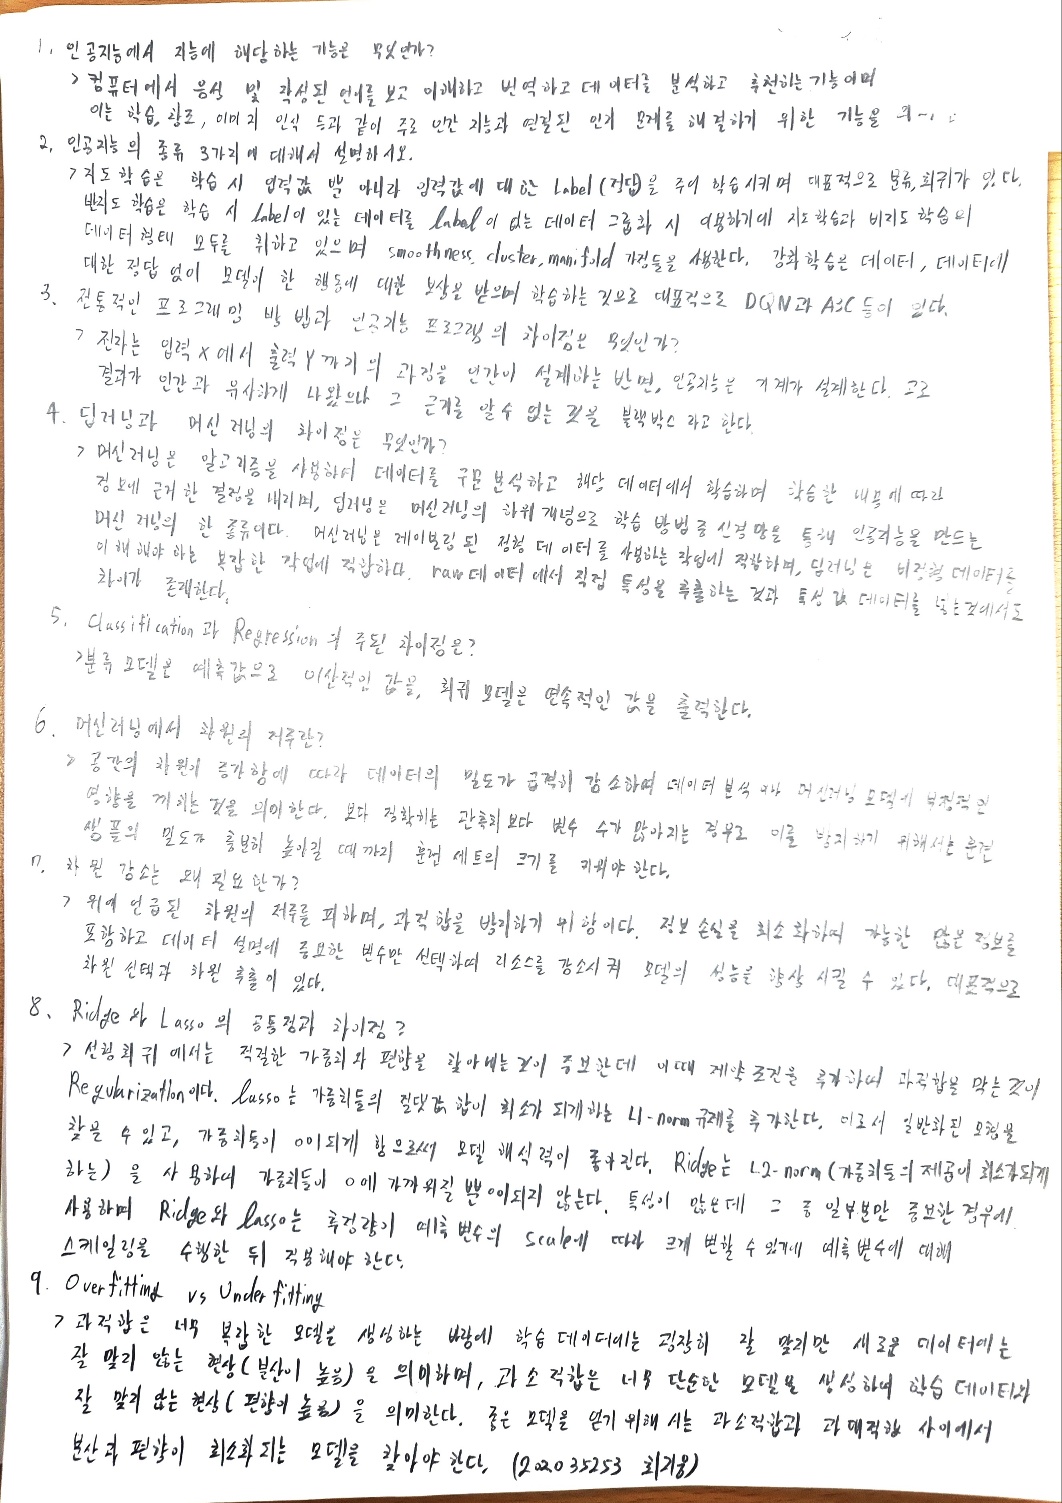 1. 인공지능에서 지능에 해당하는 기능은 무엇인가?
> 컴퓨터에서 음식 및 작성된 언어를 보고 이해하고 번역하고 데이터를 분석하고 추천하는 기능이며
이는 학습, 창조, 이미지 인식 등과 같이 주로 인간 지능과 연결된 인지 문제를 해결하기 위한 기능을
2. 인공지능의 종류 3가지에 대해서 설명하시오.
> 지도학습은 학습 시 입력값 뿐 아니라 입력값에 대한 Label(정답)을 주어 학습시키며 대표적으로 분류, 회귀가 있다.
반지도 학습은 학습 시 label이 있는 데이터를 label이 없는 데이터 그룹화 시 이용하기에 지도학습과 비지도 학습의
데이터 형태 모두를 취하고 있으며 smoothness, cluster, manifold 가정들을 사용한다. 강화학습은 데이터, 데이터에
대한 정답 없이 모델이 한 행동에 대한 보상을 받으며 학습하는 것으로 대표적으로 DQN과 A3C 등이 있다.
3. 전통적인 프로그래밍 방법과 인공지능 프로그램의 차이점은 무엇인가?
> 전자는 입력 X에서 출력 Y까지의 과정을 인간이 설계하는 반면, 인공지능은 기계가 설계한다. 고로
결과가 인간과 유사하게 나왔으나 그 근거를 알 수 없는 것을 블랙박스라고 한다.
4. 딥러닝과 머신러닝의 차이점은 무엇인가?
> 머신러닝은 알고리즘을 사용하여 데이터를 구문 분석하고 해당 데이터에서 학습하며 학습한 내용에 따라
정보에 근거한 결정을 내리며, 딥러닝은 머신러닝의 하위 개념으로 학습 방법 중 신경망을 통해 인공지능을 만드는
머신 러닝의 한 종류이다. 머신러닝은 레이블링 된 정형 데이터를 사용하는 작업에 적합하며, 딥러닝은 비정형 데이터를
이해해야 하는 복잡한 작업에 적합하다. raw 데이터에서 직접 특성을 추출하는 것과 특성값 데이터를 넣는것에서도
차이가 존재한다.
5. Classification과 Regression의 주된 차이점은?
> 분류 모델은 예측값으로 이산적인 값을, 회귀 모델은 연속적인 값을 출력한다.
6. 머신러닝에서 차원의 저주란?
> 공간의 차원이 증가함에 따라 데이터의 밀도가 급격히 감소하며 데이터 분석이나 머신러닝 모델에 부정적인
영향을 끼치는 것을 의미한다. 보다 정확히는 관측치보다 변수 수가 많아지는 경우로 이를 방지하기 위해서는 훈련
샘플의 밀도가 충분히 높아질 때까지 훈련 세트의 크기를 키워야 한다.
7. 차원 감소는 왜 필요한가?
> 위에 언급된 차원의 저주를 피하며, 과적합을 방지하기 위함이다. 정보손실을 최소화하며 가능한 많은 정보를
포함하고 데이터 설명에 중요한 변수만 선택하며 리소스를 감소시켜 모델의 성능을 향상 시킬 수 있다. 대표적으로
차원 선택과 차원 추출이 있다.
8. Ridge와 Lasso의 공통점과 차이점?
> 선형회귀에서는 적절한 가중치와 편향을 찾아내는 것이 중요한데 이때 제약조건을 추가하여 과적합을 막는 것이
Regularization이다. Lasso는 가중치들의 절댓값 합이 최소가 되게하는 L1-norm 규제를 추가한다. 이로서 일반화된 모형을
찾을 수 있고, 가중치들이 0이되게 함으로써 모델 해석력이 좋아진다. Ridge는 L2-norm(가중치들의 제곱이 최소가되게
하는)을 사용하여 가중치들이 0에 가까워질 뿐 0이되지 않는다. 특성이 많은데 그 중 일부분만 중요한 경우에
사용하며 Ridge와 Lasso는 추정량이 예측 변수의 scale에 따라 크게 변할 수 있기에 예측 변수에 대해
스케일링을 수행한 뒤 적용해야 한다.
9. Overfitting vs Underfitting
> 과적합은 너무 복잡한 모델을 생성하는 바람에 학습 데이터에는 굉장히 잘 맞지만 새로운 데이터에는
잘 맞지 않는 현상(분산이 높음)을 의미하며, 과소적합은 너무 단순한 모델을 생성하여 학습 데이터와
잘 맞지 않는 현상(편향이 높음)을 의미한다. 좋은 모델을 얻기 위해서는 과소적합과 과대적합 사이에서
분산과 편향이 최소화 되는 모델을 찾아야 한다. (202035253 최기웅)